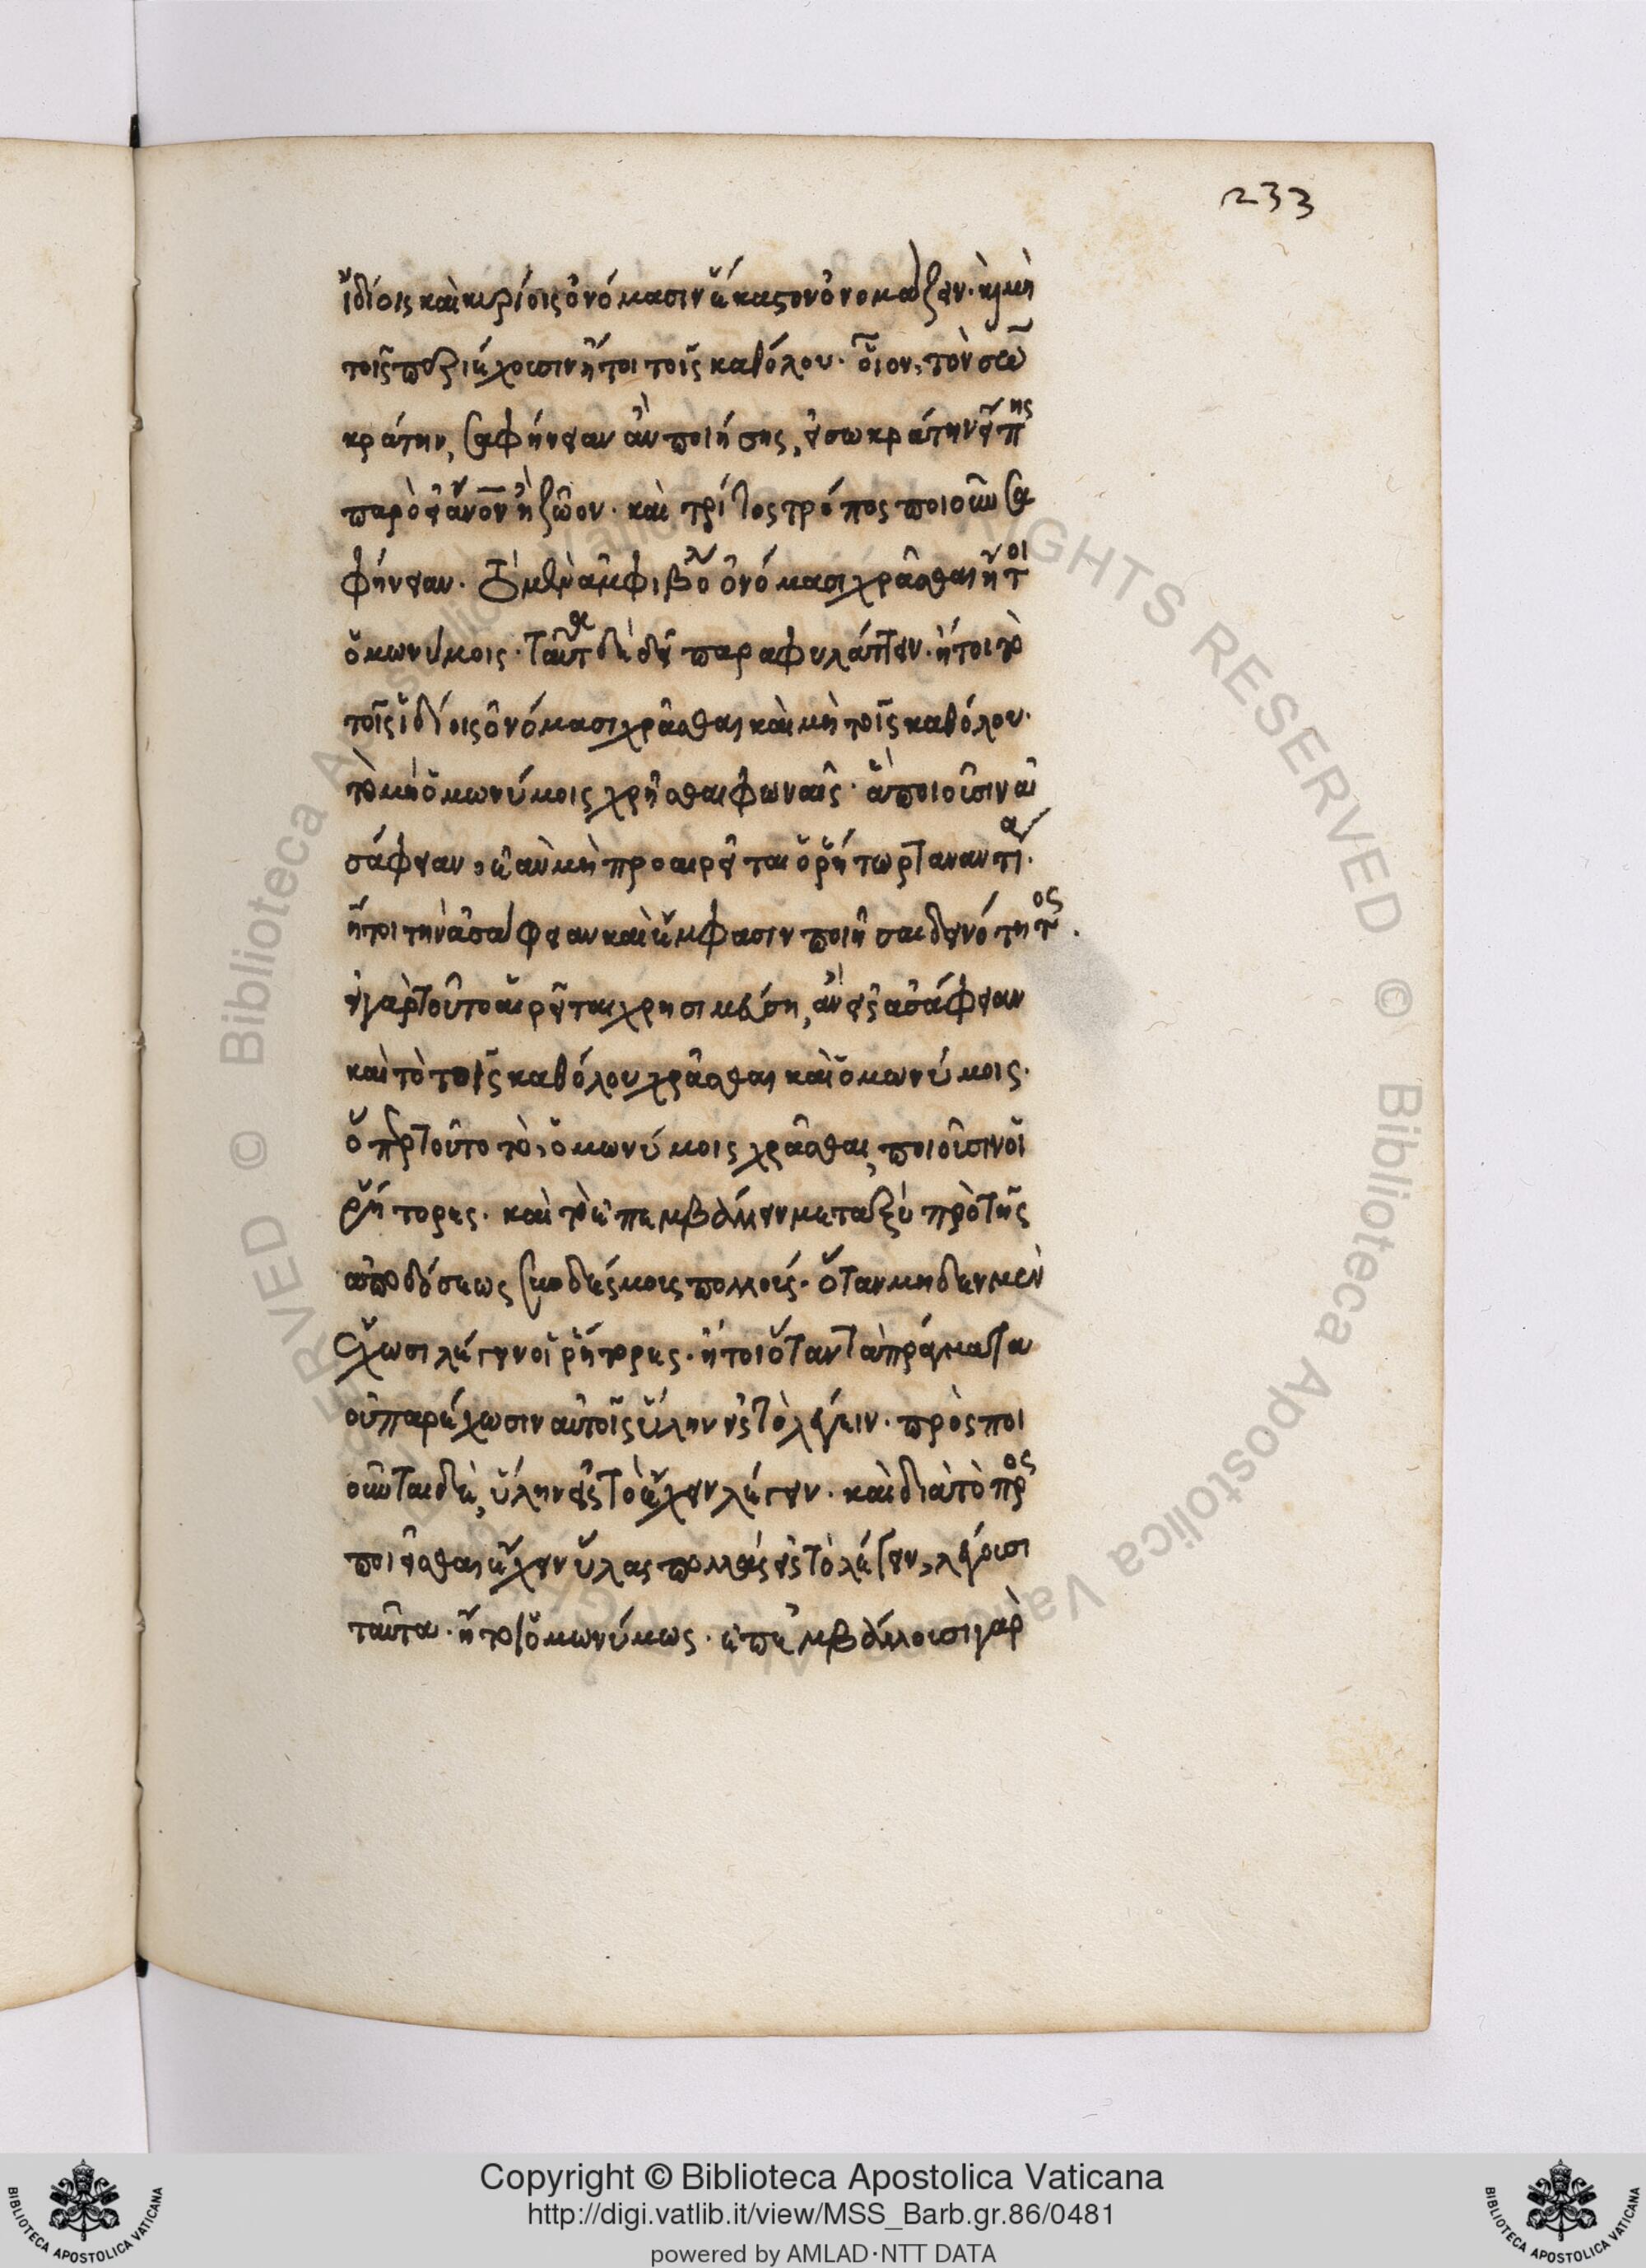 233
ἰδίοις καὶ κυρίοις ὀνόμασιν ἕκαστον ὀνομάζειν· κ μὴ
τοῖς περιέχουσιν ἤτοι τοῖς καθόλου· οἷον, τὸν σω
κράτην, σαφήνειαν ἂν ποιήσης, εἰ σωκράτην εἴπης
παρὸ εἰ ἄνον ἢ ζῶον· καὶ τρίτος τρόπος ποιοῦν σα
φήνειαν· τὸ μὴ ἀμφιβόλ ὀνόμασι χρᾶσθαι ἤτοι
ὁμωνύμοις· ταῦτ δὲ δεῖ παραφυλάττειν· ἤτοι τὸ
τοῖς ἰδίοις ὀνόμασι χρᾶσθαι καὶ μὴ τοῖς καθόλου·
τὸ μὴ ὁμωνύμοις χρῆσθαι φωναῖς· ἃ ποιοῦσιν ἀ
σάφειαν, ἐὰν μὴ προαιρεῖται ὁ ῥήτωρ τἀναντία·
ἤτοι τὴν ἀσάφειαν καὶ ἔμφασιν ποιῆσαι δεινότητος·
εἰ γὰρ τοῦτο αἱρεῖται χρησιμεύσῃ, ἂν εἰς ἀσάφειαν
καὶ τὸ τοῖς καθόλου χρᾶσθαι καὶ ὁμωνύμοις·
ὅπερ τοῦτο τὸ, ὁμωνύμοις χρᾶσθαι, ποιοῦσιν οἱ
ῥήτορες· καὶ τὸ ἐπεμβάλλειν μεταξὺ πρὸ τῆς
ἀποδόσεως συνδέσμοις πολλοῖς· ὅταν μηδὲν μὲν
ἔχωσι λέγειν οἱ ῥήτορες· ἤτοι ὅταν τὰ πράγματα
οὐ παρέχωσιν αὐτοῖς ὕλην εἰς τὸ λέγειν· πρὸς ποι
οῦνται δὲ, ὕλην εἰς τὸ ἔχειν λέγειν· καὶ διὰ τὸ προς
ποιεῖσθαι ἔχειν ὕλας πολλὰς εἰς τὸ λέγειν, λέγουσι
ταῦτα· ἤτοι ὁμωνύμως· ἐπεμβάλλουσι γὰρ
RIGHTS RESERVED © Biblioteca Apostolica Vaticana
Copyright © Biblioteca Apostolica Vaticana
http://digi.vatlib.it/view/MSS_Barb.gr.86/0481
powered by AMLAD·NTT DATA
BIBLIOTECA APOSTOLICA VATICANA
BIBLIOTECA APOSTOLICA VATICANA